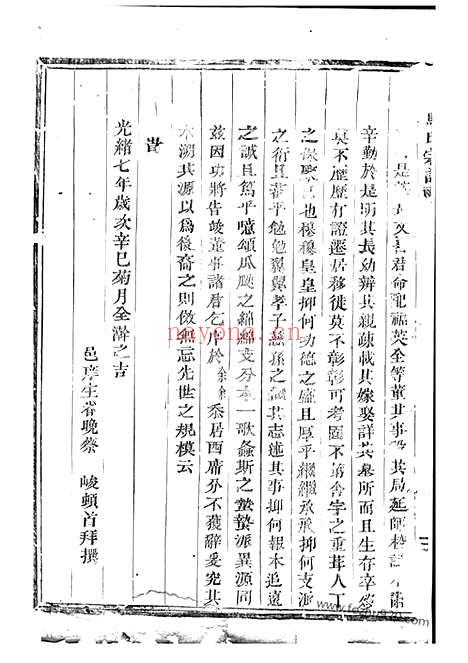 氏宗譜
是 君命 英全等董其事 其局延師
辛勤於是明其長幼辨其親疎載其嫁娶詳其墓所而且生存卒
莫不歷歷有證遷居移徙莫不彰彰可考 不第舍字之重葺人丁
之 也穆穆皇皇抑何功德之盛且厚乎繼繼承承抑何支派
之衍且蕃乎勉勉翼翼孝子慈孫之 其志述其事抑何報本追遠
之誠且篤乎噫頌瓜瓞之綿綿支分本一歌螽斯之蟄蟄派異源同
茲因功將告竣董事諸君乞弁於余余忝居西席分不獲辭爰究其
本溯其源以為後裔之則傚 忘先世之規模云
旹
光緒七年歲次辛巳菊月全澣之吉
邑庠生眷晚蔡 峻頓首拜撰
nayona.cn